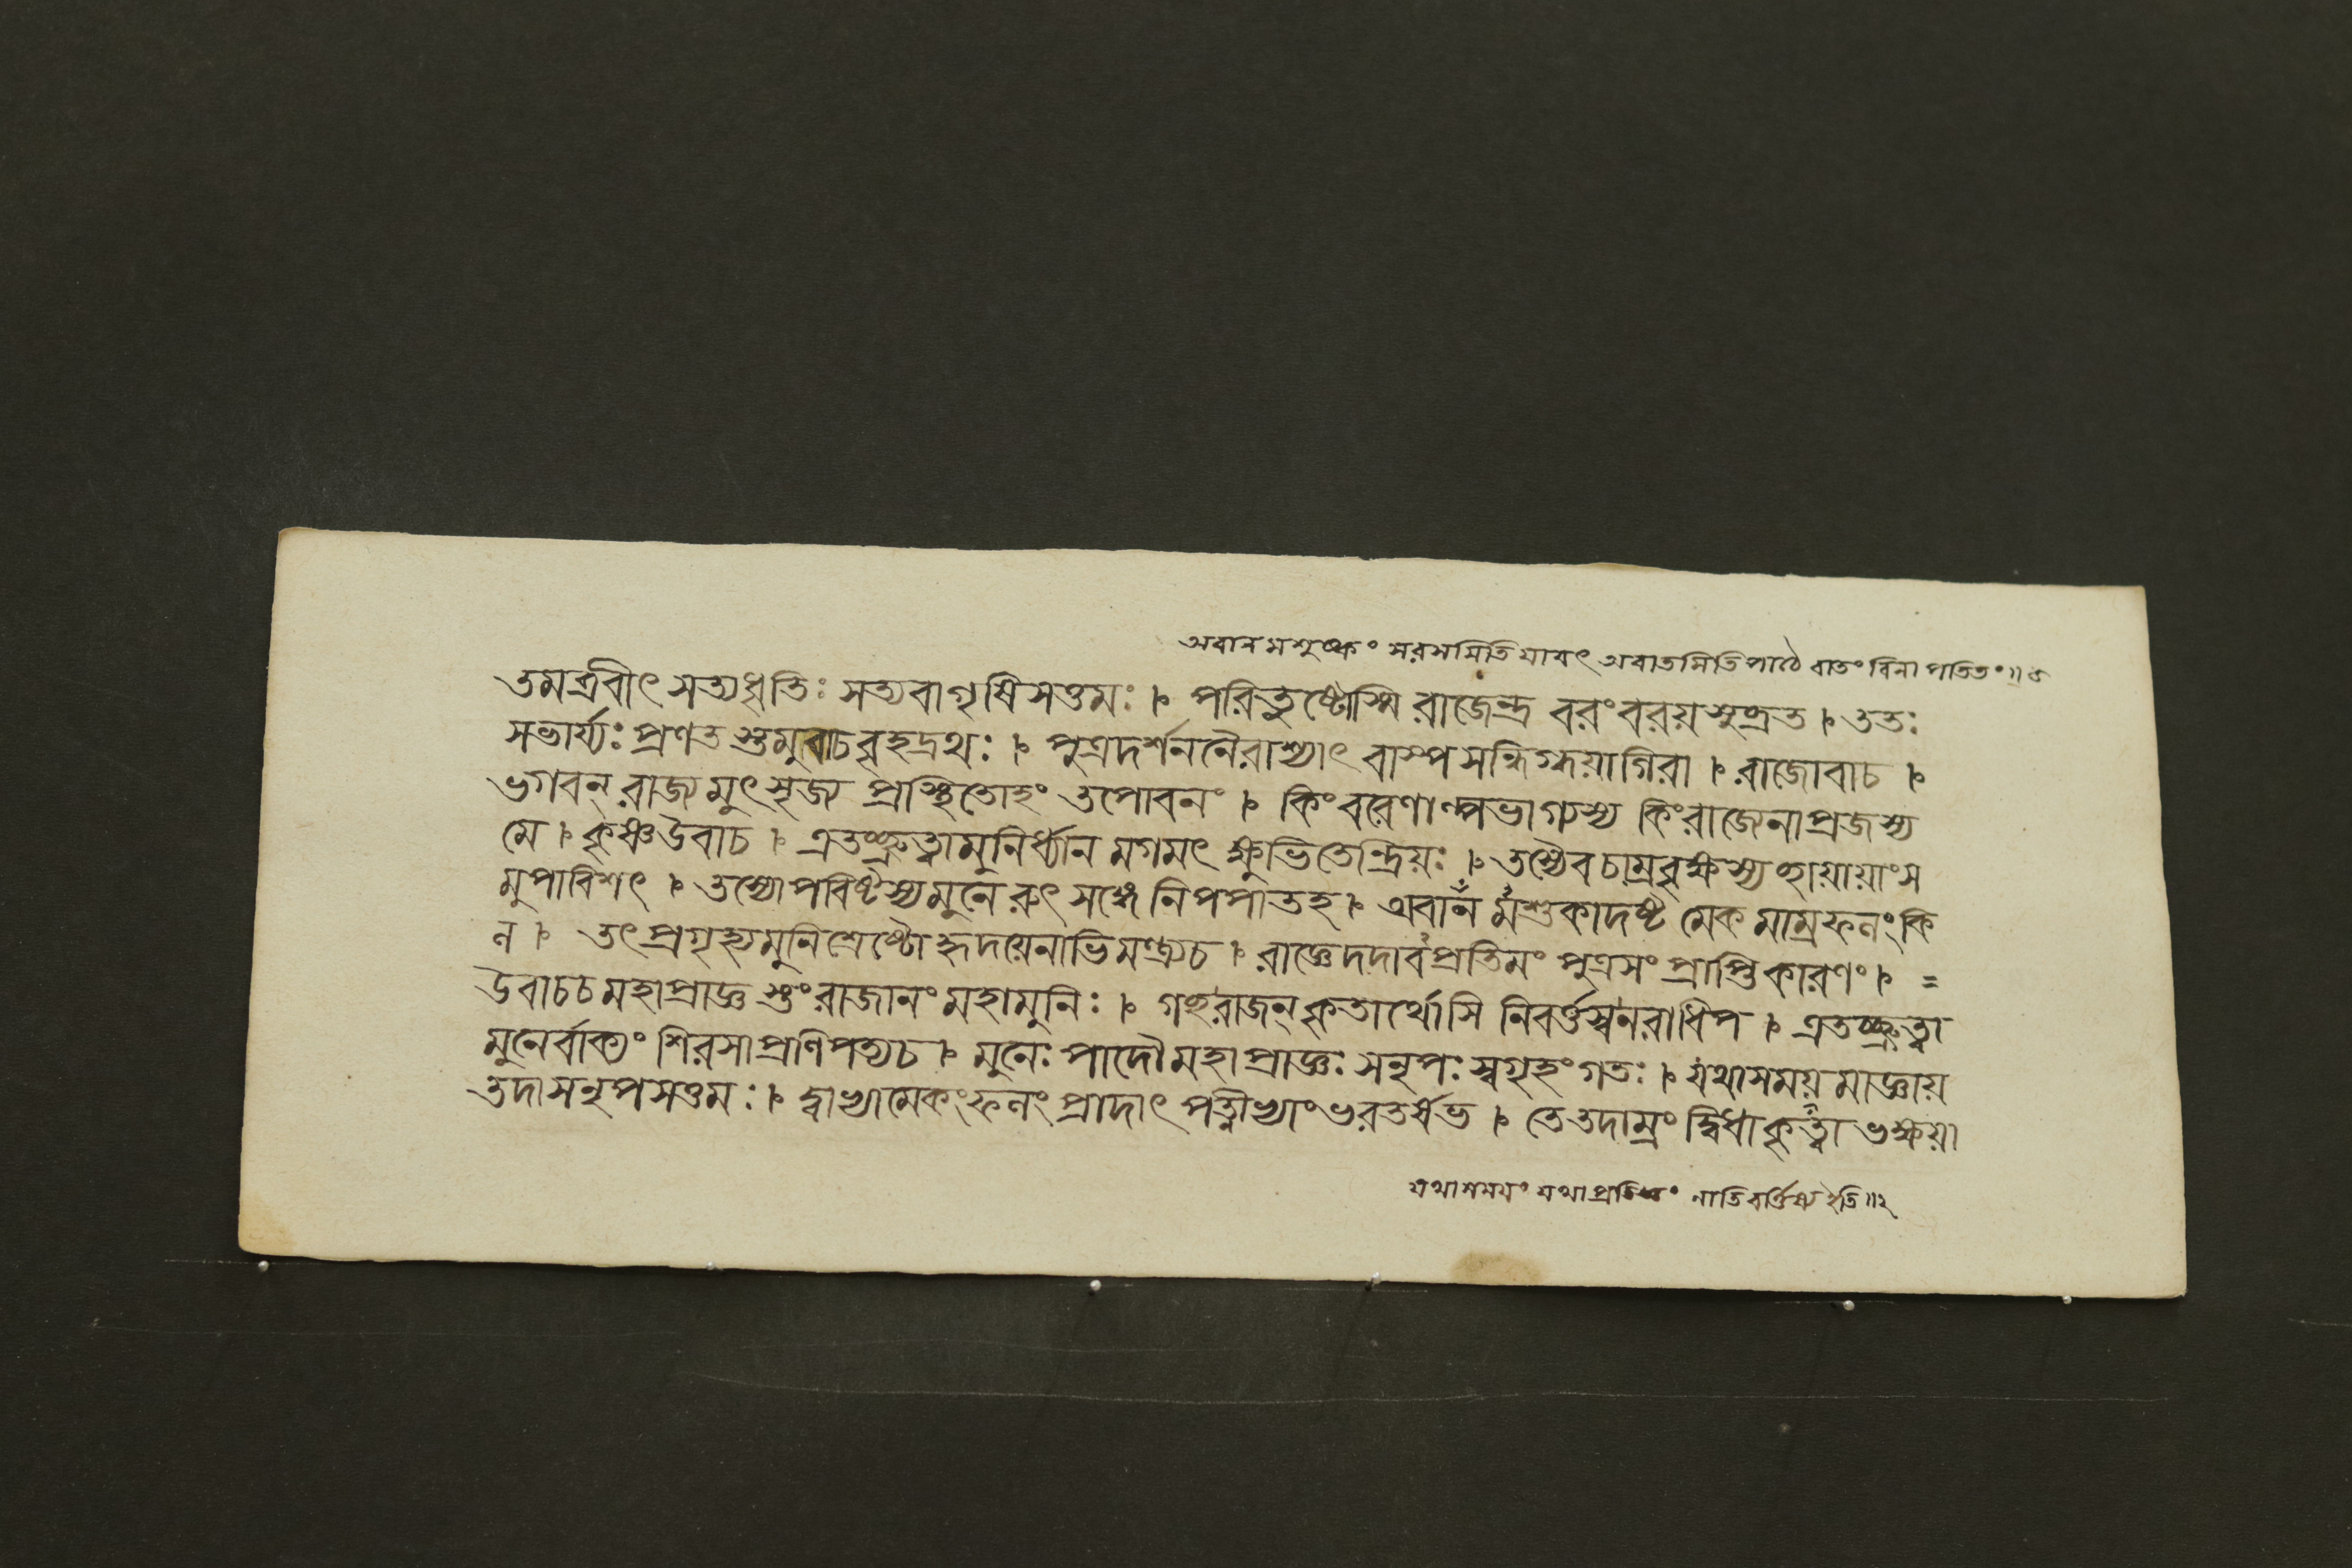 অবানমশুষ্কং সরসমিতি যাবৎ অবাতমিতিপাঠে বাতং বিনা পতিতং॥ ৫
তমব্রবীৎ সত্যধৃতিঃ সত্যবাগৃষিসত্তমঃ। পরিতুষ্টোস্মি রাজেন্দ্র বরং বরয় সুব্রত। ততঃ
সভার্য্যঃ প্রণতস্তমুবাচ বৃহদ্রথঃ। পুত্রদর্শননৈরাশ্যাৎ বাস্পসন্দিগ্ধয়া গিরা। রাজোবাচ।
ভগবন্ রাজ্যমুৎসৃজ্য প্রস্থিতোহং তপোবনং। কিং বরেণাল্পভাগ্যস্য কিং রাজ্যেনাপ্রজস্য
মে। কৃষ্ণ উবাচ। এতচ্ছ্রুত্বা মুনির্ধ্যানমগমৎ ক্ষুভিতেন্দ্রিয়ঃ। তস্যৈব চাম্রবৃক্ষস্য ছায়ায়াং স
মুপাবিশৎ। তস্যোপবিষ্টস্য মুনেরুৎসঙ্গে নিপপাত হ। অবানমশুকাদষ্টমেকমাম্রফলং কি
ল। তৎ প্রগৃহ্য মুনিশ্রেষ্ঠো হৃদয়েনাভিমন্ত্র্য চ। রাজ্ঞে দদাবপ্রতিমং পুত্রসংপ্রাপ্তিকারণং। =
উবাচ চ মহাপ্রাজ্ঞস্তং রাজানং মহামুনিঃ। গচ্ছ রাজন্ কৃতার্থোসি নিবর্ত্তস্ব নরাধিপ। এতচ্ছ্রুত্বা
মুনের্বাক্যং শিরসা প্রণিপত্য চ। মুনেঃ পাদৌ মহাপ্রাজ্ঞঃ স নৃপঃ স্বগৃহং গতঃ। যথাসময়মাজ্ঞায়
তদা স নৃপসত্তমঃ। দ্বাভ্যামেকং ফলং প্রাদাৎ পত্নীভ্যাং ভরতর্ষভ। তে তদাম্রং দ্বিধা কৃত্বা ভক্ষয়া
যথাসময়ং যথাপ্রতিজ্ঞং নাতিবর্ত্তিষ্য ইতি॥২